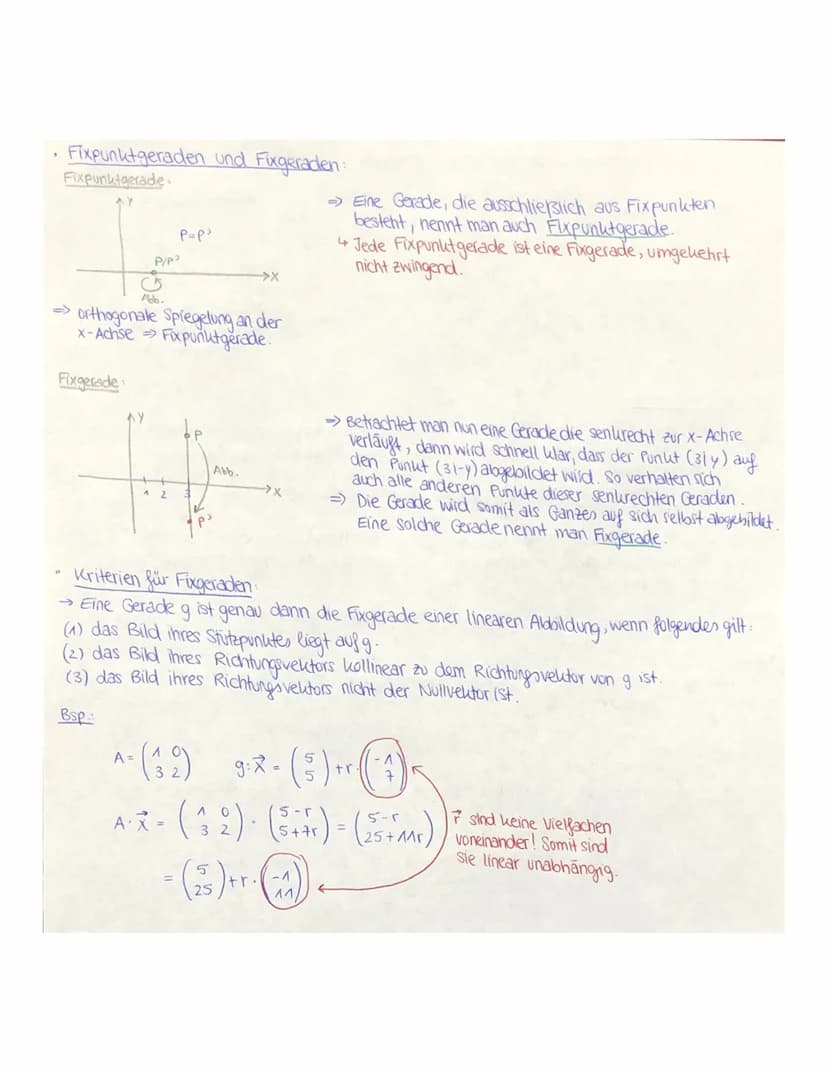 • Fixpunktgeraden und Fixgeraden:
Fixpunktgerade:
y
P=P'
P/P'
x
Abb.
⇒ orthogonale Spiegelung an der
x-Achse ⇒ Fixpunktgerade.
⇒ Eine Gerade, die ausschließlich aus Fixpunkten
besteht, nennt man auch Fixpunktgerade.
↳ Jede Fixpunktgerade ist eine Fixgerade, umgekehrt
nicht zwingend.
Fixgerade:
y
P
Abb.
1 2 3
x
P'
⇒ Betrachtet man nun eine Gerade die senkrecht zur x-Achse
verläuft, dann wird schnell klar, dass der Punkt (3|y) auf
den Punkt (3|-y) abgebildet wird. So verhalten sich
auch alle anderen Punkte dieser senkrechten Geraden.
⇒ Die Gerade wird somit als Ganzes auf sich selbst abgebildet.
Eine solche Gerade nennt man Fixgerade.
• Kriterien für Fixgeraden:
→ Eine Gerade g ist genau dann die Fixgerade einer linearen Abbildung, wenn folgendes gilt:
(1) das Bild ihres Stützpunktes liegt auf g.
(2) das Bild ihres Richtungsvektors kollinear zu dem Richtungsvektor von g ist.
(3) das Bild ihres Richtungsvektors nicht der Nullvektor ist.
Bsp.:
A = (1 0 / 3 2) g: x⃗ = (5 / 5) + r · (-1 / 7)
A · x⃗ = (1 0 / 3 2) · (5-r / 5+7r) = (5-r / 25+11r)
= (5 / 25) + r · (-1 / 11)
r⃗ sind keine Vielfachen
voneinander! Somit sind
sie linear unabhängig.